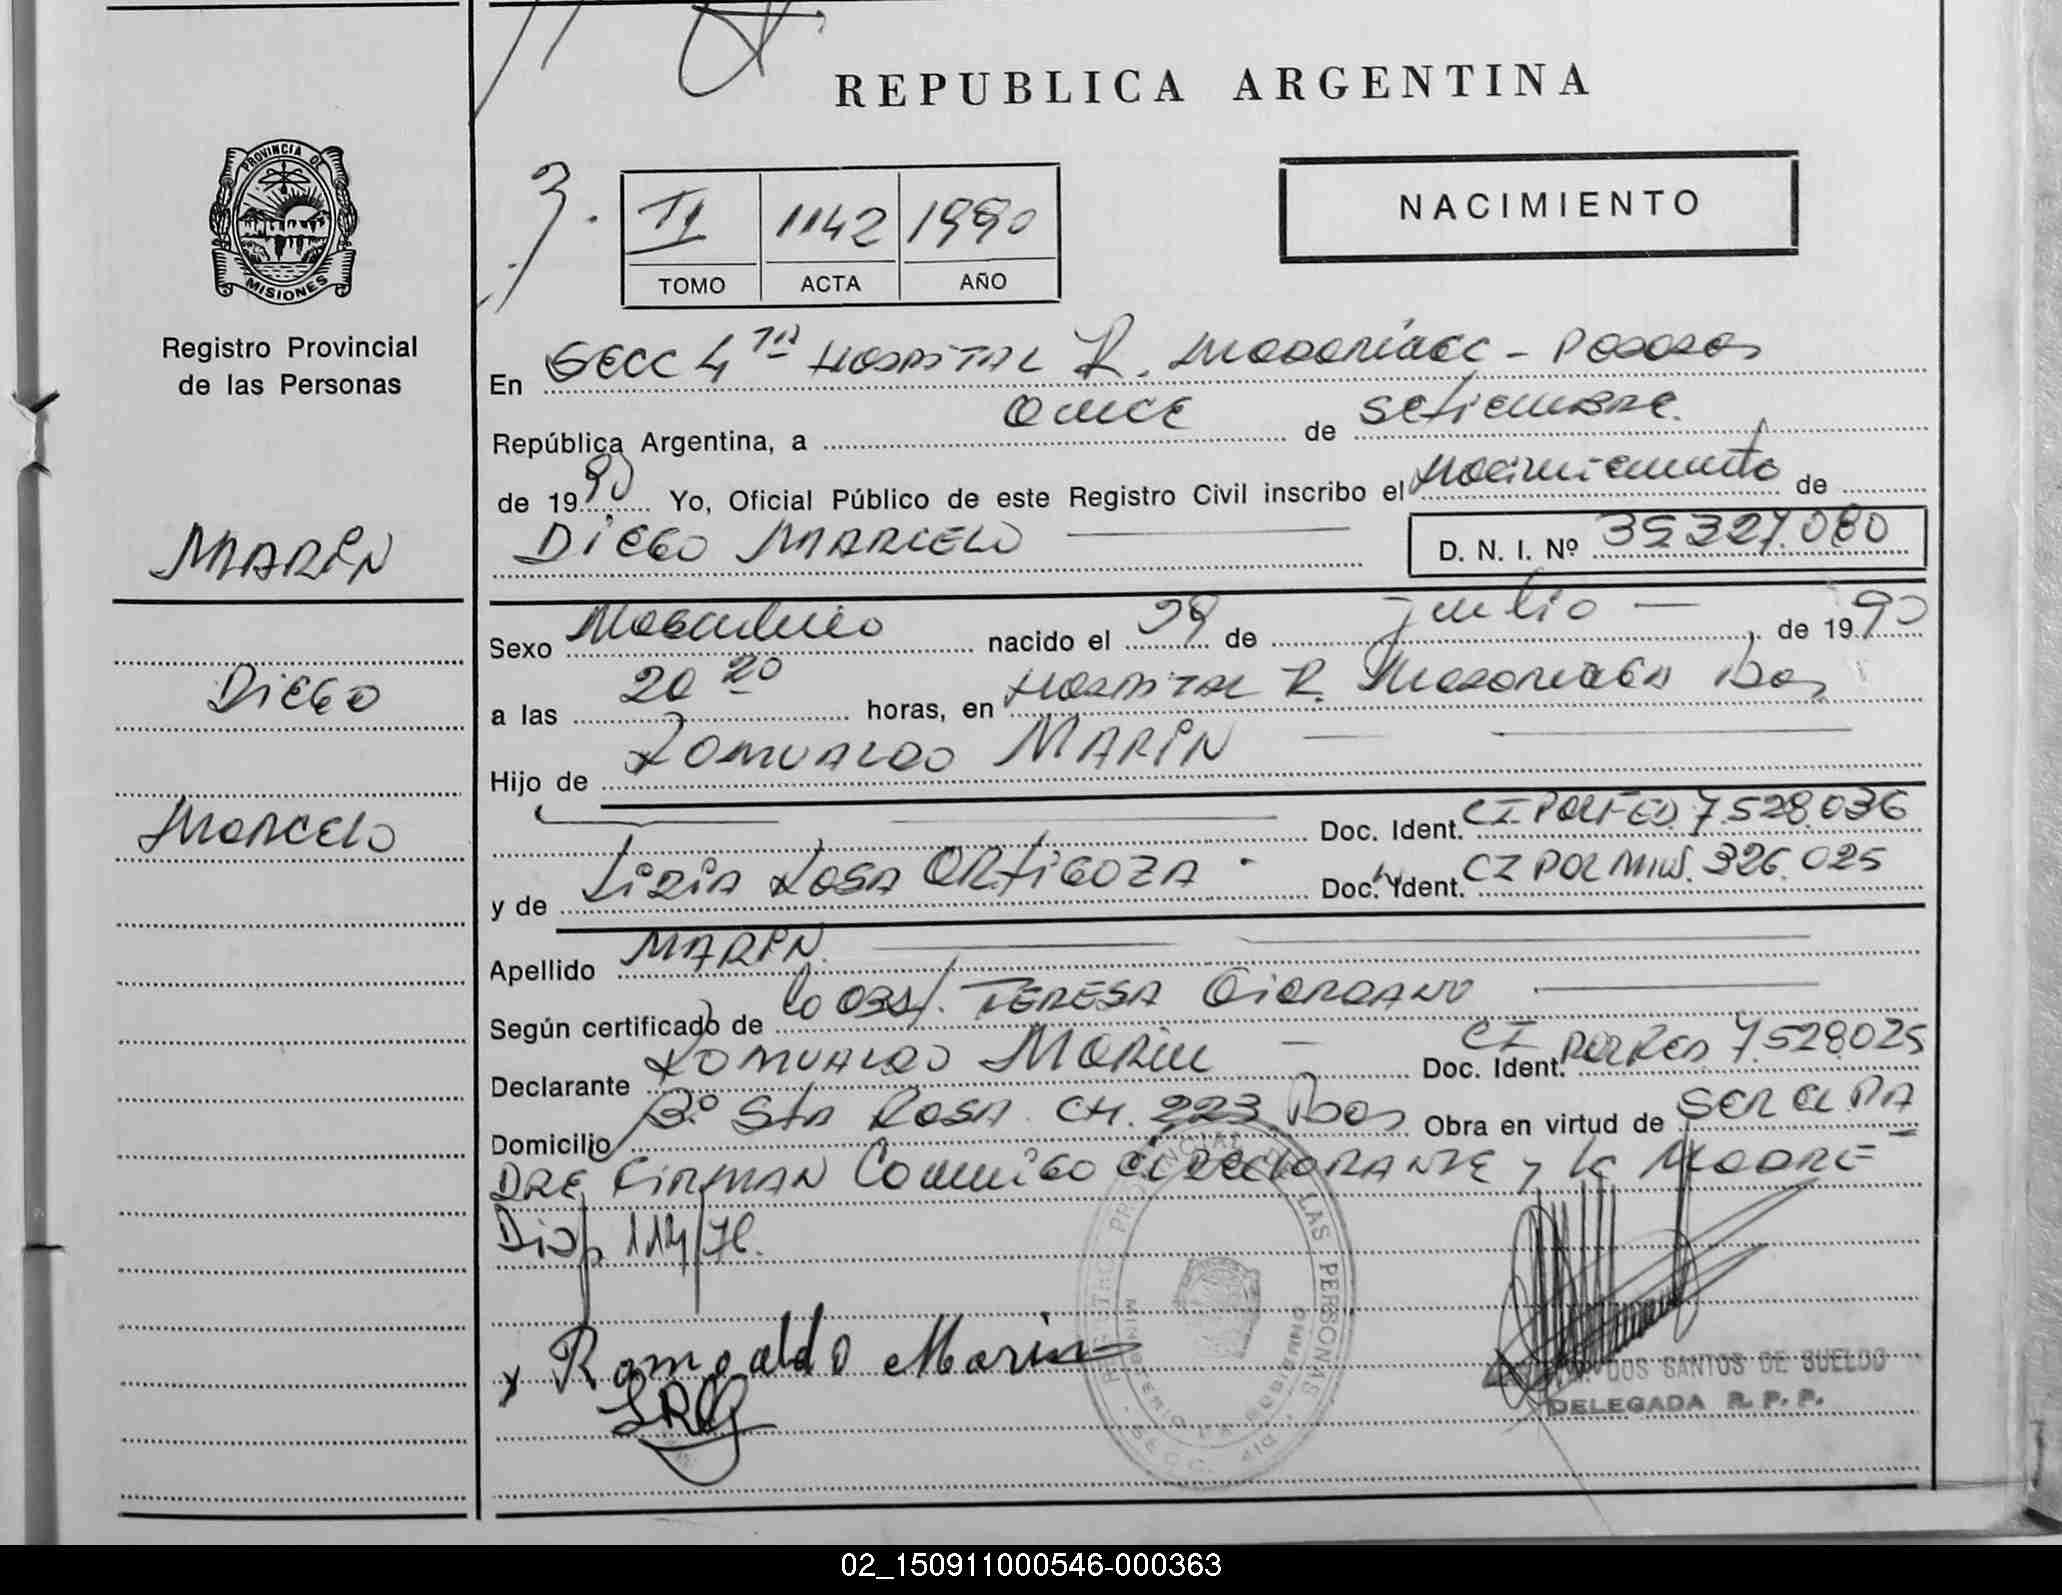 REPUBLICA ARGENTINA
PROVINCIA DE
MISIONES
Registro Provincial
de las Personas
3.
II 1142 1990
TOMO ACTA AÑO
NACIMIENTO
En SECC 4TA HOSPITAL R. Madariaga - Posadas
República Argentina, a QUINCE de SETIEMBRE.
de 1990 Yo, Oficial Público de este Registro Civil inscribo el Nacimiento de
DIEGO MARCELO D. N. I. Nº 35.327.080
MARIN
DIEGO
MARCELO
Sexo Masculino nacido el 29 de julio de 1990
a las 20 20 horas, en HOSPITAL R. Madariaga Pdas
Hijo de ROMUALDO MARIN
Doc. Ident. CI POL FED. 7.528.036
y de LIDIA ROSA ORTIGOZA Doc. Ident. CI POL MNS. 326.025
Apellido MARIN
Según certificado de la Obst. TERESA GIORDANO
Declarante ROMUALDO MARIN Doc. Ident. CI POL FED 7.528.025
Domicilio Bº Sta ROSA CH. 223 Pdas Obra en virtud de SER EL PA
DRE FIRMAN Conmigo el DECLARANTE y la MADRE
Disp 114/76.
x Romoaldo Marin
LRO
REGISTRO PROVINCIAL DE LAS PERSONAS
MINISTERIO DE GOBIERNO
DOS SANTOS DE SUELDO
DELEGADA R. P. P.
02_150911000546-000363